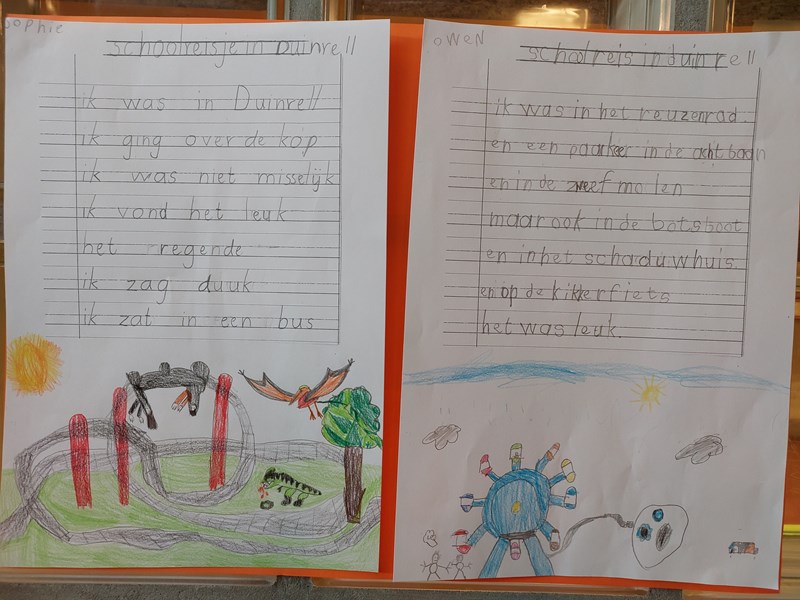 Sophie
schoolreisje in Duinrell
ik was in Duinrell
ik ging over de kop
ik was niet misselijk
ik vond het leuk
het regende
ik zag duuk
ik zat in een bus
OWeN
schoolreis in duinrell
ik was in het reuzenrad.
en een paar keer in de achtbaan
en in de zweef molen
maar ook in de botsboot
en in het schaduwhuis.
en op de kikkerfiets
het was leuk.